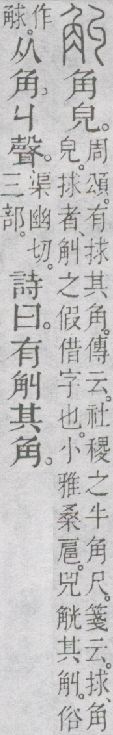 觓
角皃。
周頌。有捄其角。傳云。社稷之牛角尺。箋云。捄、角
皃。捄者、觓之假借字也。小雅桑扈。兕觥其觓。俗
作
觩。
从角、丩聲。
渠幽切。
三部。
詩曰。有觓其角。